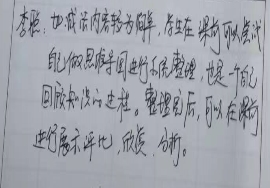 李聪:加减法内容较为简单,学生在课前可以尝试
自己做思维导图进行系统整理,也是一个自己
回顾知识的过程。整理完后,可以在课前
进行展示评比,欣赏,分析。